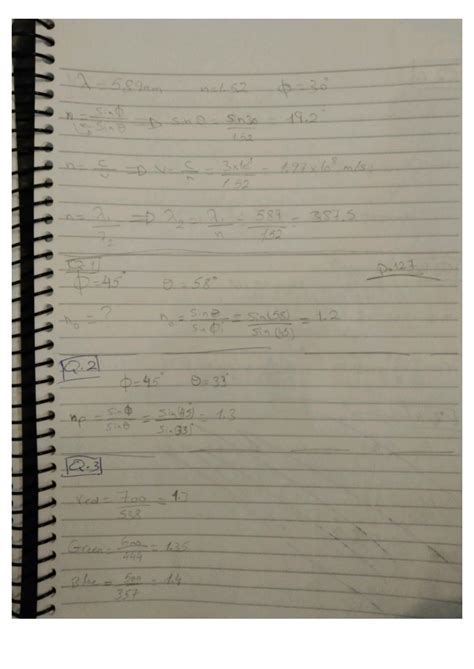 λ = 589nm n=1.52 φ = 30°
n = sinφ / sinθ ⇒ sinθ = sin30 / 1.52 = 19.2°
n = c/v ⇒ v = c/n = 3×10⁸ / 1.52 = 1.97×10⁸ m/s
n = λ₁/λ₂ ⇒ λ₂ = λ₁/n = 589 / 1.52 = 387.5
Q.1 P.127
φ=45° θ = 58°
n = ? n = sinθ / sinφ = sin(58) / sin(45) = 1.2
Q.2
φ=45° θ=33°
np = sinφ / sinθ = sin(45)° / sin(33)° = 1.3
Q.3
red = 700 / 538 = 1.3
Green = 600 / 444 = 1.35
Blue = 500 / 357 = 1.4